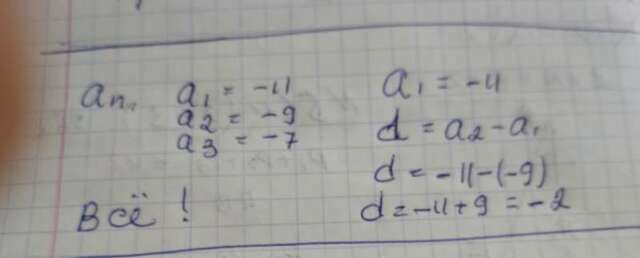 an. a1 = -11
a2 = -9
a3 = -7
Всё !
a1 = -11
d = a2 - a1
d = -11-(-9)
d = -11 + 9 = -2